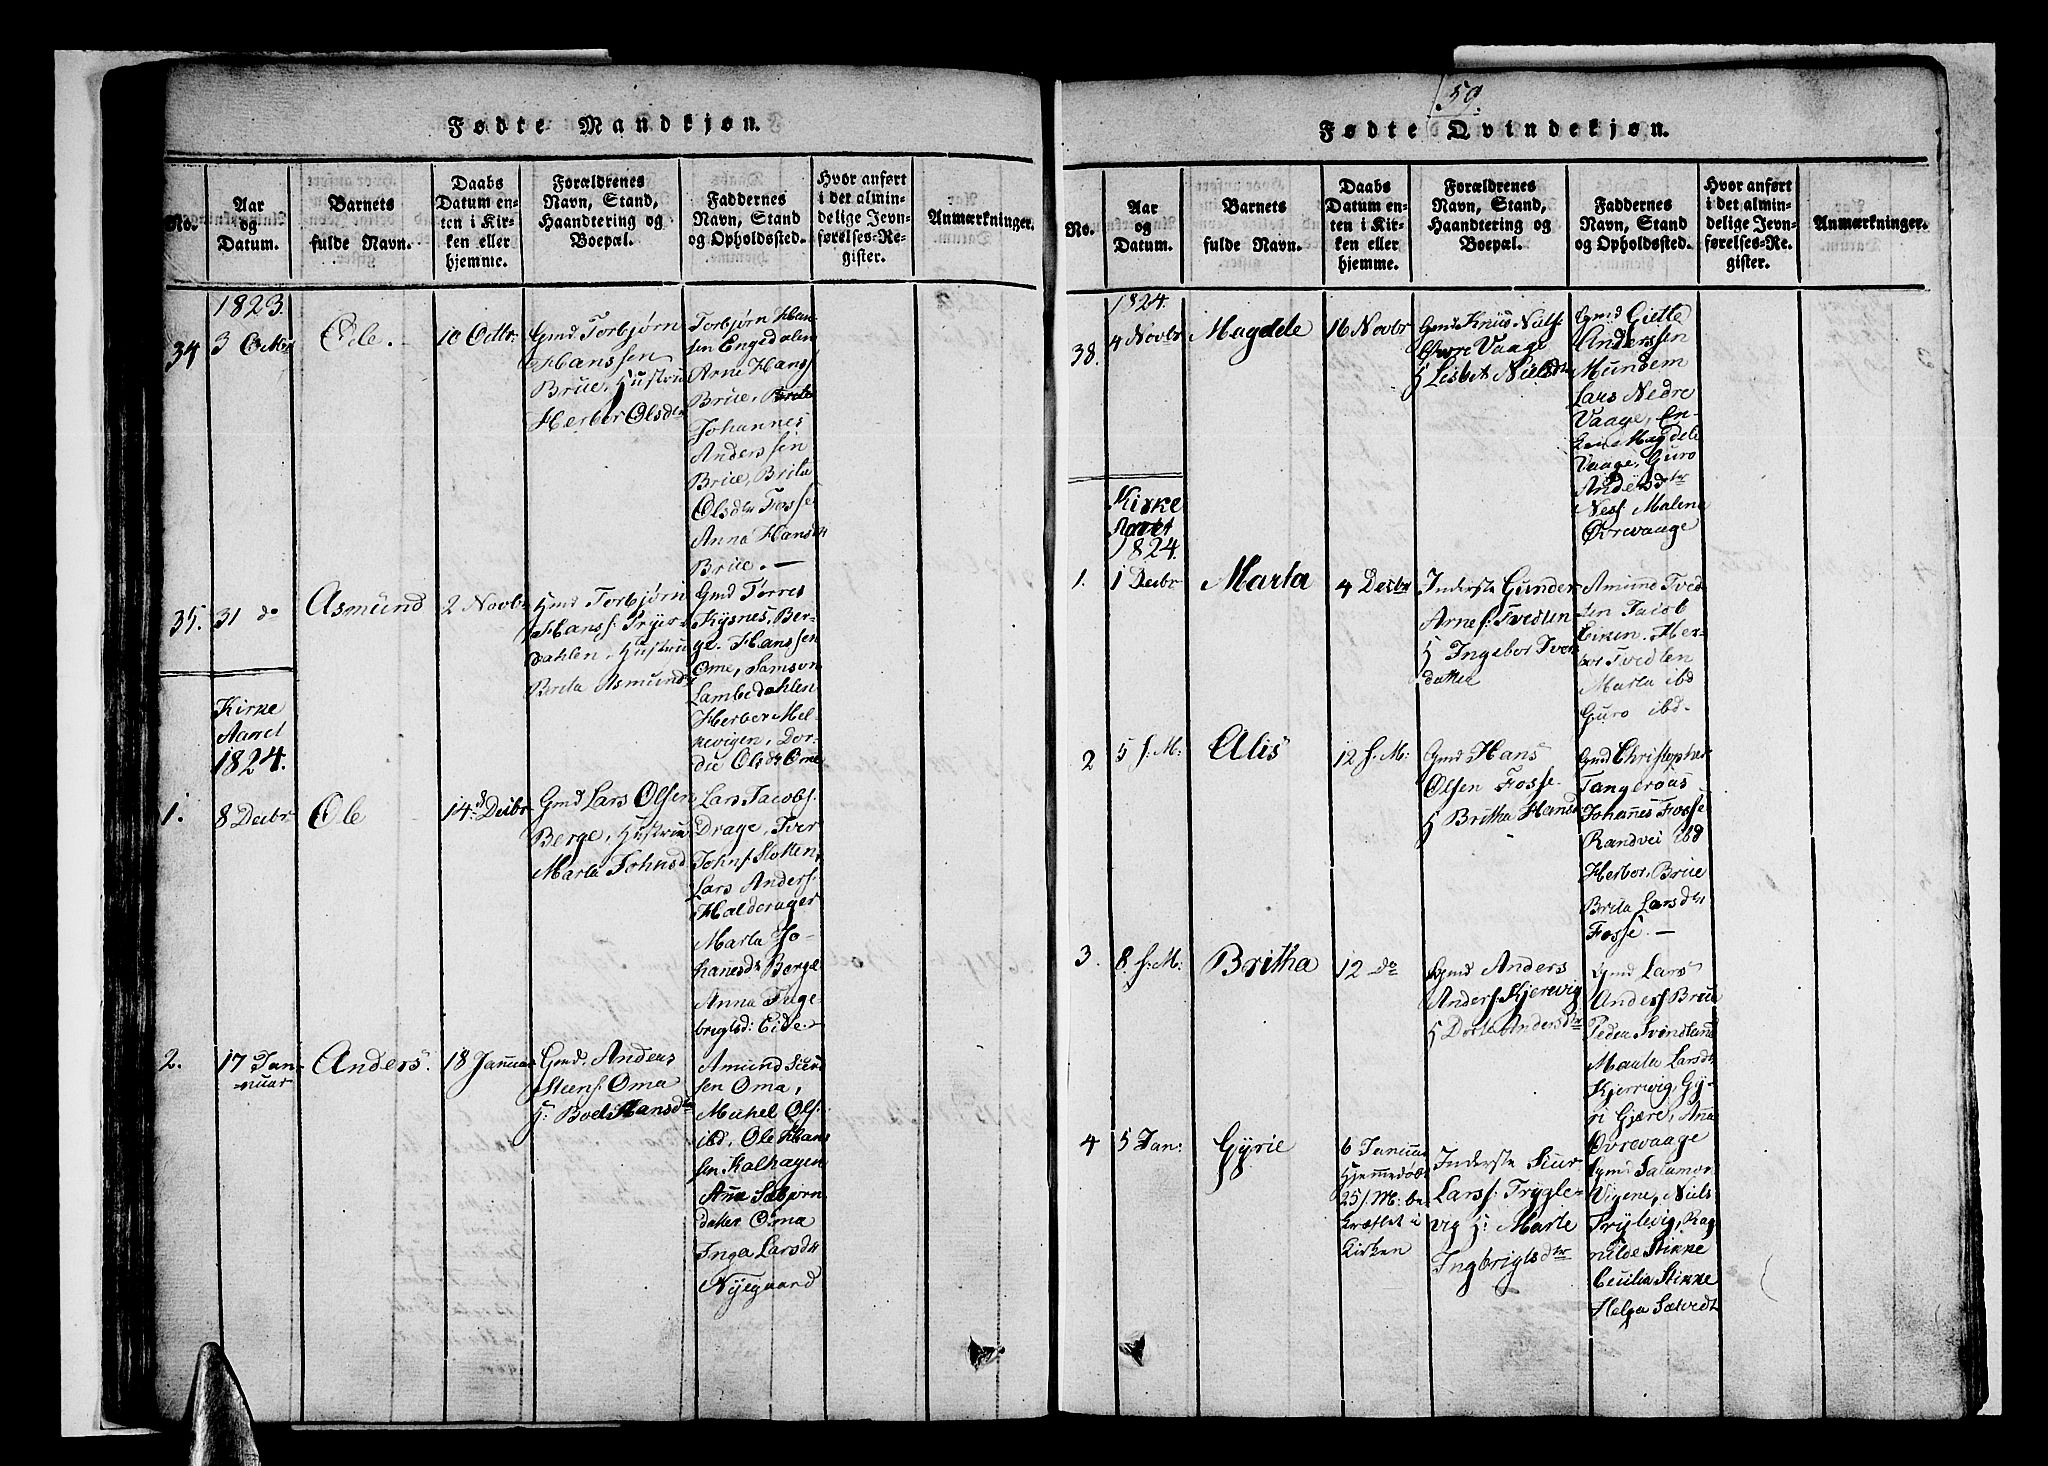 Fødte Mandkjøn.
No.
Aar
og
Datum.
Barnets
fulde Navn.
Daabs
Datum en-
ten i Kir-
ken eller
hjemme.
Forældrenes
Navn, Stand,
Haandtering og
Boepæl.
Faddernes
Navn, Stand
og Opholdssted.
Hvor anført
i det almin-
delige Jevn-
førelses-Re-
gister.
Anmærkninger.
1823.
34
3 Octbr
Ole.
10 Octbr:
Gmd Torbjørn
Hanssen
Brue, Hustrue
Herbor Olsdtr
Torbjørn Han-
sen Engedalen
Arne Hanss
Brue,
Johannes
Anderssen
Brue, Brita
Olsdtr Fosse
Anna Hansdtr
Brue. —
35.
31 do
Asmund
2 Novbr
Gmd Torbjørn
Hanss:
dahlen, Hustrue
Brita Asmunds
Gmd Torres
Kysnes, Ber-
ge. Hanssen
Ome, Samson
Lambedahlen
Herbor Mel-
kevigen, Dor-
die Olsdtr Ome
Kirke
Aaret
1824.
1.
8 Decbr
Ole
14 Decbr
Gmd Lars Olsen
Berge, Hustrue
Marta Johnsd
Lars Jacobs.
Drage, Iver
Johns Slotten,
Lars Anders.
Halderager
Marta Jo-
hanesdr Berge
Anna Inge
brigtsd: Eide.
2.
17 Jan-
nuar
Anders.
18 Januar
Gmd. Anders
Steens. Oma
H. Boel Hansdtr
Amund Siurd
sen Oma,
Michel Ols.
ibd, Ole Hans
sen Kalhagen
Anna Sæbjørn
datter Oma
Inga Larsdtr
Nyegaard
59.
Fødte Qvindekjøn.
No.
Aar
og
Datum.
Barnets
fulde Navn.
Daabs
Datum en-
ten i Kir-
ken eller
hjemme.
Forældrenes
Navn, Stand,
Haandtering og
Boepæl.
Faddernes
Navn, Stand
og Opholdssted.
Hvor anført
i det almin-
delige Jevn-
førelses-Re-
gister.
Anmærkninger.
1824.
38.
4 Novbr
Magdele
16 Novbr
Gmd Knud Niels
Øvre Vaage
H Lisbet Nielsdtr
Gmd Gietle
Anderssen
Mundem
Lars Nedre
Vaage, En-
ken Magdele
Vaage, Guro
Andersdtr
Ness Malena
Øvrevaage
Kirke
Aaret
1824.
1.
1 Decbr
Marta
4 Decbr
Inderste Gunder
Arnes: Tvedten
H Ingebor Iver
datter
Amund Tved
ten Jacob
Eiken. Her-
bor Tvedten
Marta ibd
Guro ibd.
2
5 s. M:
Alis
12 s. M:
Gmd Hans
Olsen Fosse
H Britha Hansd
Gmd Christopher
Tangeraas
Johanes Fosse
Randvei ibd
Herbor, Brue
Brita Larsdtr
Fosse. —
3.
8. s. M:
Britha
12 do
Gmd Anders
Anders. Kjervig
H Dorta Andersdtr
Gmd Lars
Anders Brue
Peder Tvindland
Marta Larsdtr
Kjerrvig Gy-
ri Gjære, Anna
Øvrevaage
4
5 Jan:
Gyrie
6 Januar
Hjemmedøbt
25 s. M: be
kræftet i
Kirken
Inderste Siur
Larss. Trygle-
vig H: Marte
Ingbrigtsdtr
Gmd Salamon
Vigene, Niels
Trylevig, Rag
nilde Stikke
Cecilia Stikke
Helga Sætvedt